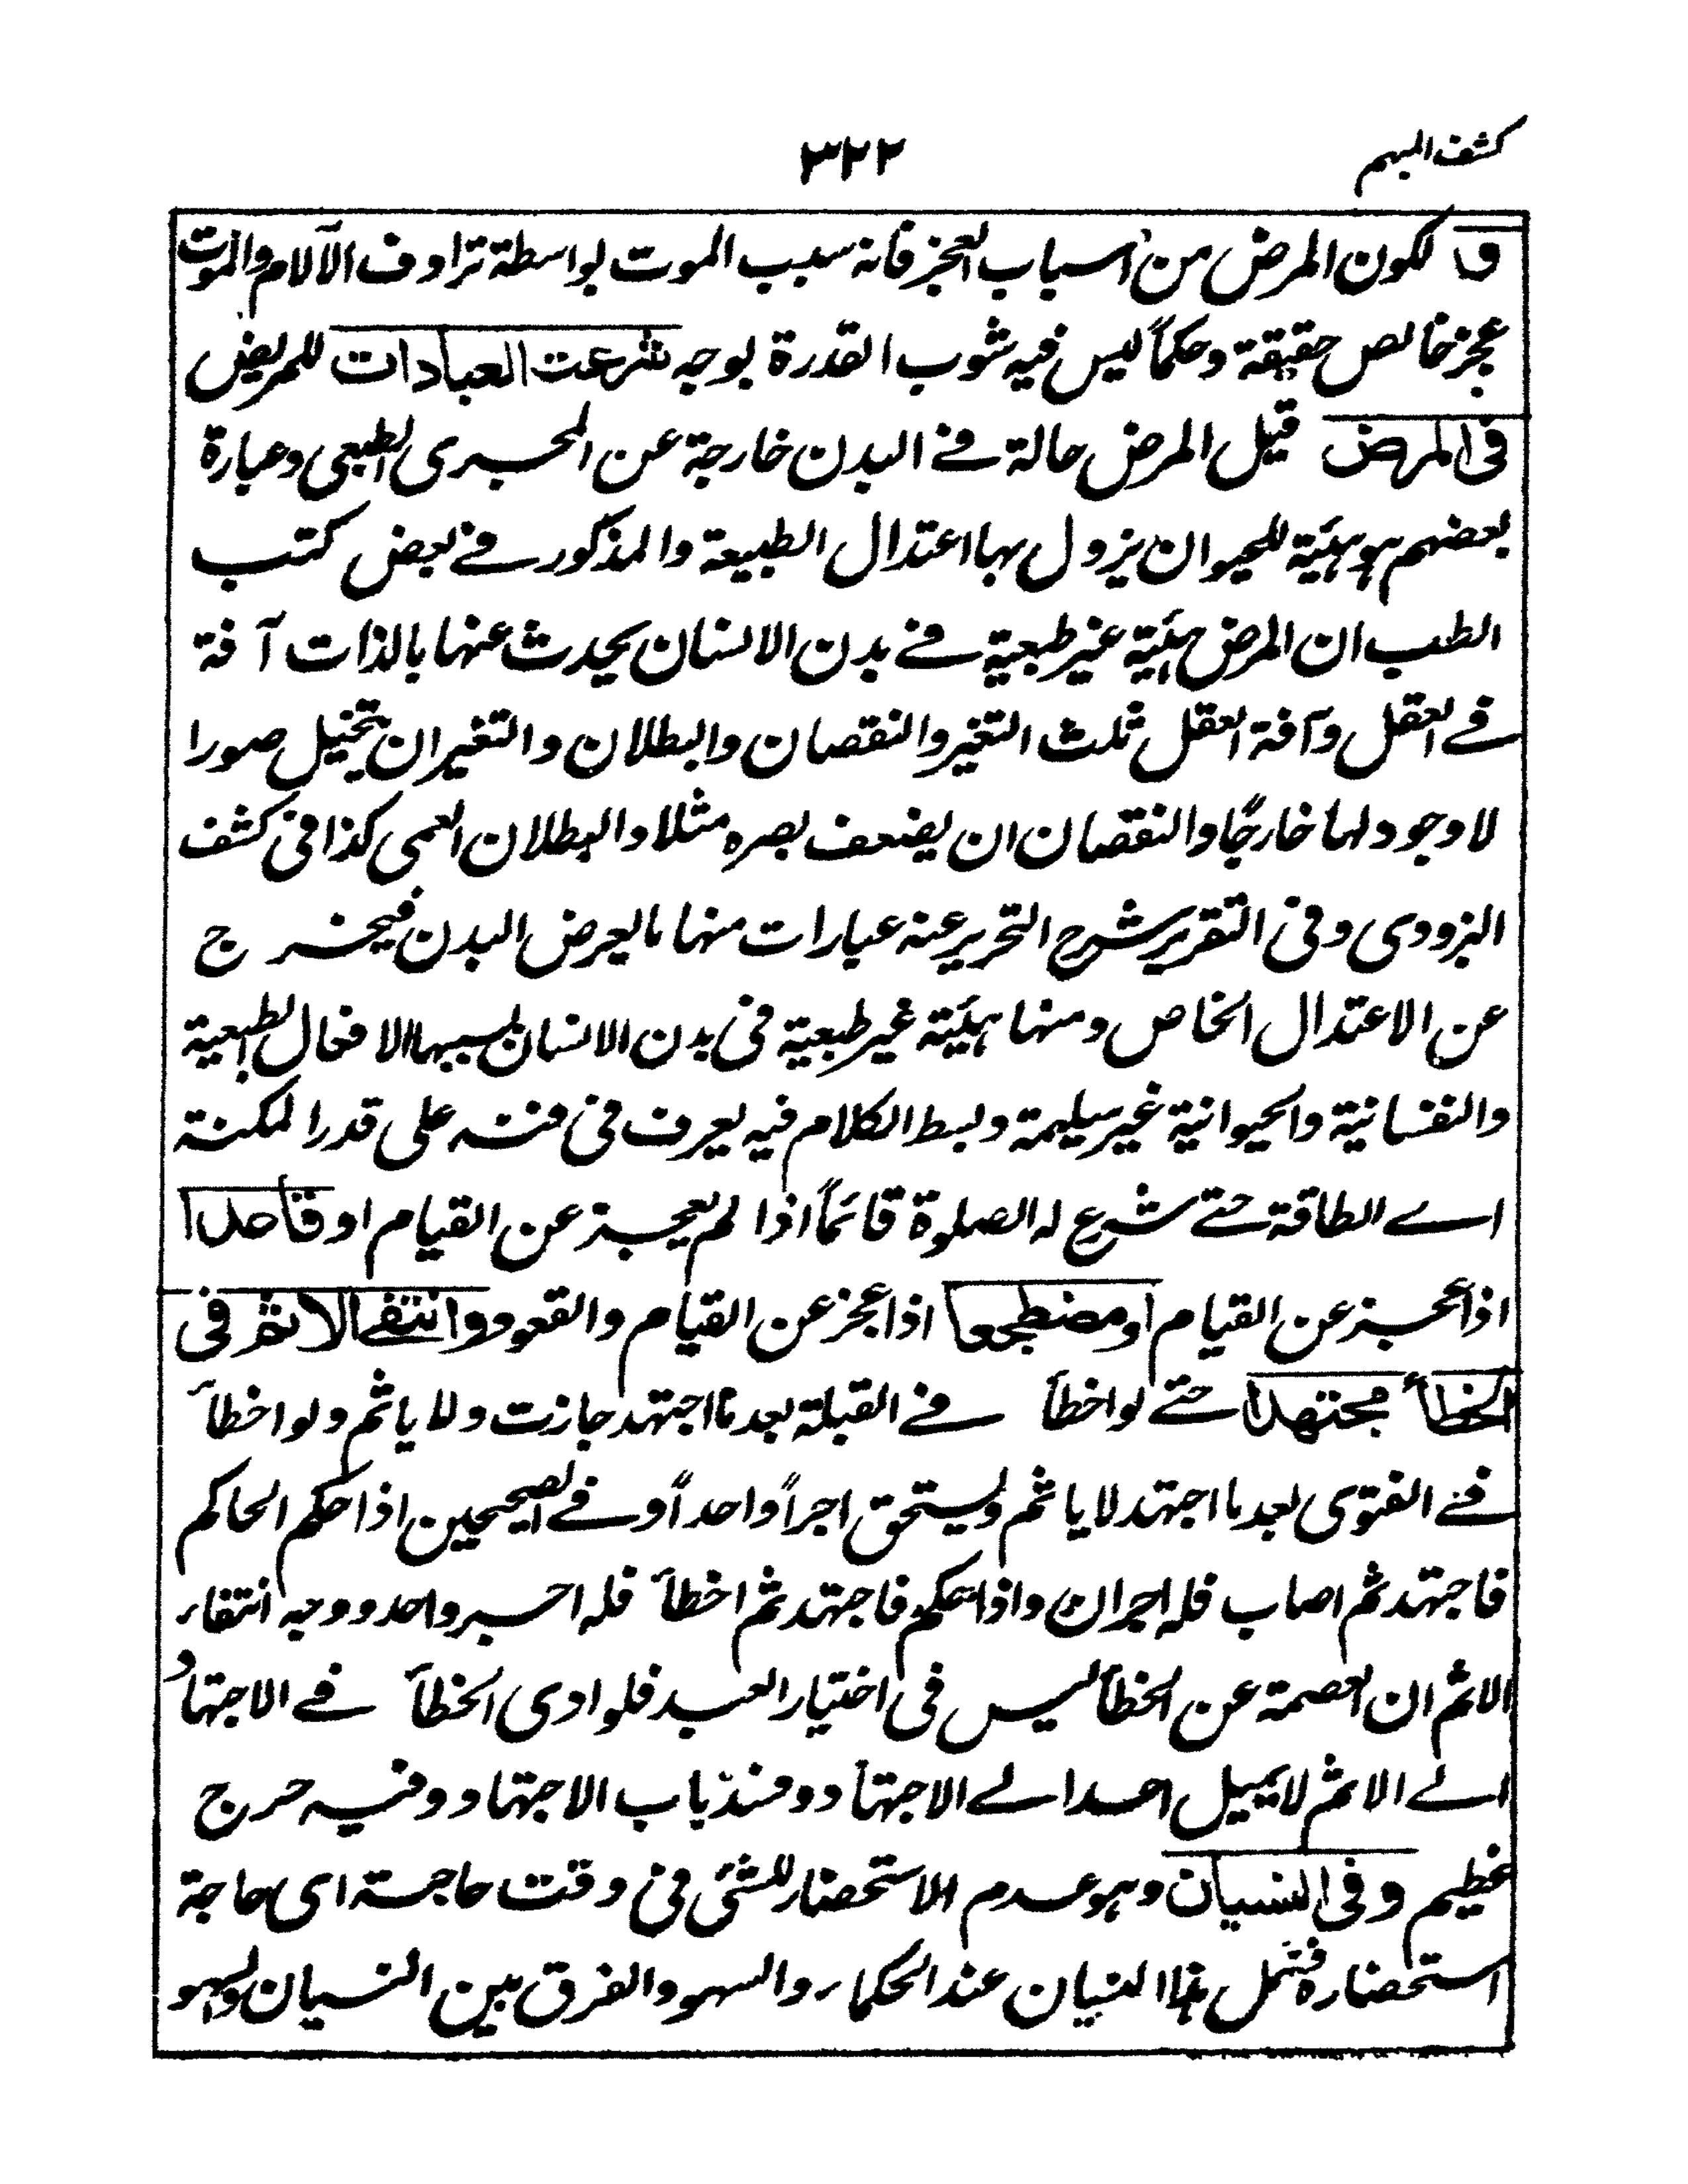 كشف المبهم
٣٢٢
و لكون المرض من اسباب العجز فانه سبب الموت بواسطة ترادف الآلام والموت
عجز خالص حقيقة وحكماً ليس فيه شوب القدرة بوجه شرعت العبادات للمريض
فى المرض قيل المرض حالة فے البدن خارجة عن المجرى الطبعى وعبارة
بعضهم هو هيئة للحيوان يزول بها اعتدال الطبيعة والمذكور فے بعض كتب
الطب ان المرض هيئة غير طبعية فے بدن الانسان يحدث عنها بالذات آفة
فے العقل وآفة العقل ثلث التغير والنقصان والبطلان والتغير ان يتخيل صورا
لا وجود لها خارجًا والنقصان ان يضعف بصره مثلا والبطلان العمى كذا فى كشف
البزودى وفى التقرير شرح التحرير عنه عبارات منها ما يعرض البدن فيخرج
عن الاعتدال الخاص ومنها هيئة غير طبعية فى بدن الانسان بسببها الافعال الطبعية
والنفسانية والحيوانية غير سليمة وبسط الكلام فيه يعرف فى فنه على قدر المكنة
اے الطاقة حتے شرع له الصلوة قائماً اذا لم يعجز عن القيام او قاعدا
اذا عجز عن القيام او مضطجعا اذا عجز عن القيام والقعود وانتفے الاثم فى
الخطأ مجتهدا حتے لو اخطأ فے القبلة بعد ما اجتهد جازت ولا ياثم ولو اخطأ
فے الفتوى بعد ما اجتهد لا ياثم ويستحق اجراً واحداً وفے الصحيحين اذا حكم الحاكم
فاجتهد ثم اصاب فله اجران واذا حكم فاجتهد ثم اخطأ فله اجر واحد ووجه انتفاء
الاثم ان العصمة عن الخطأ ليس فى اختيار العبد فلو ادى الخطأ فے الاجتهاد
الے الاثم لا يميل احد الے الاجتهاد وفسد باب الاجتهاد وفيه حرج
عظيم وفى النسيان وهو عدم الاستحضار للشئى فى وقت حاجته اى حاجة
استحضاره فشمل هذا النسيان عند الحكماء والسهو والفرق بين النسيان والسهو